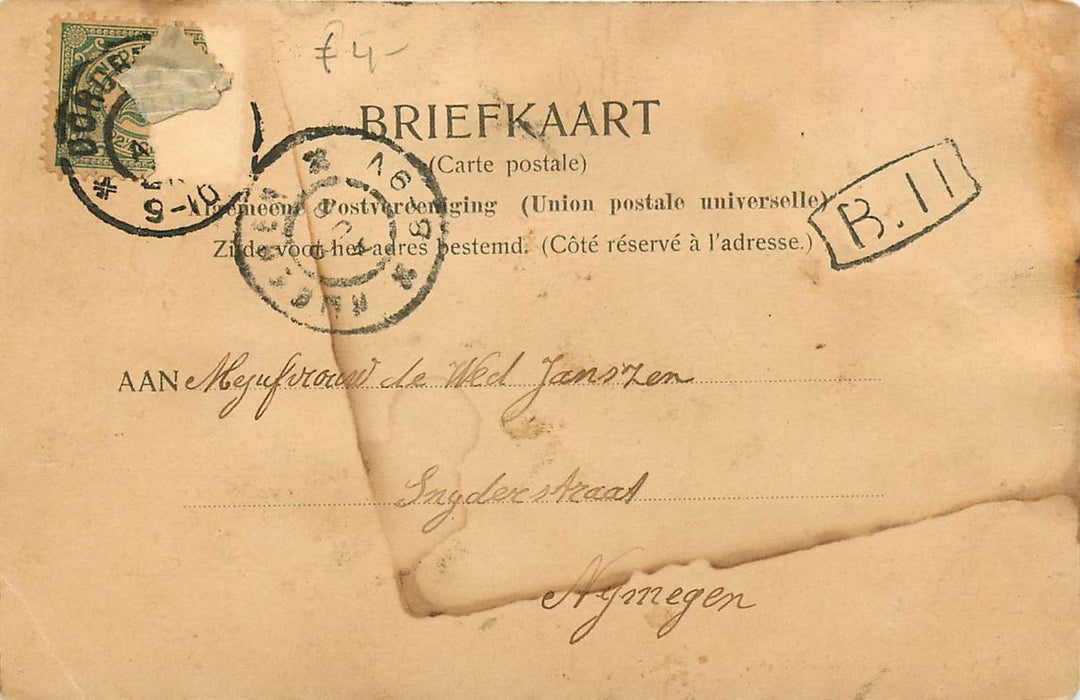 f 4-
BRIEFKAART
(Carte postale)
Algemeene Postvereeniging (Union postale universelle)
Zijde voor het adres bestemd. (Côté réservé à l'adresse.)
B.11
9-10
AAN Mejufvrouw de Wed Janszen
Snyderstraat
Nymegen